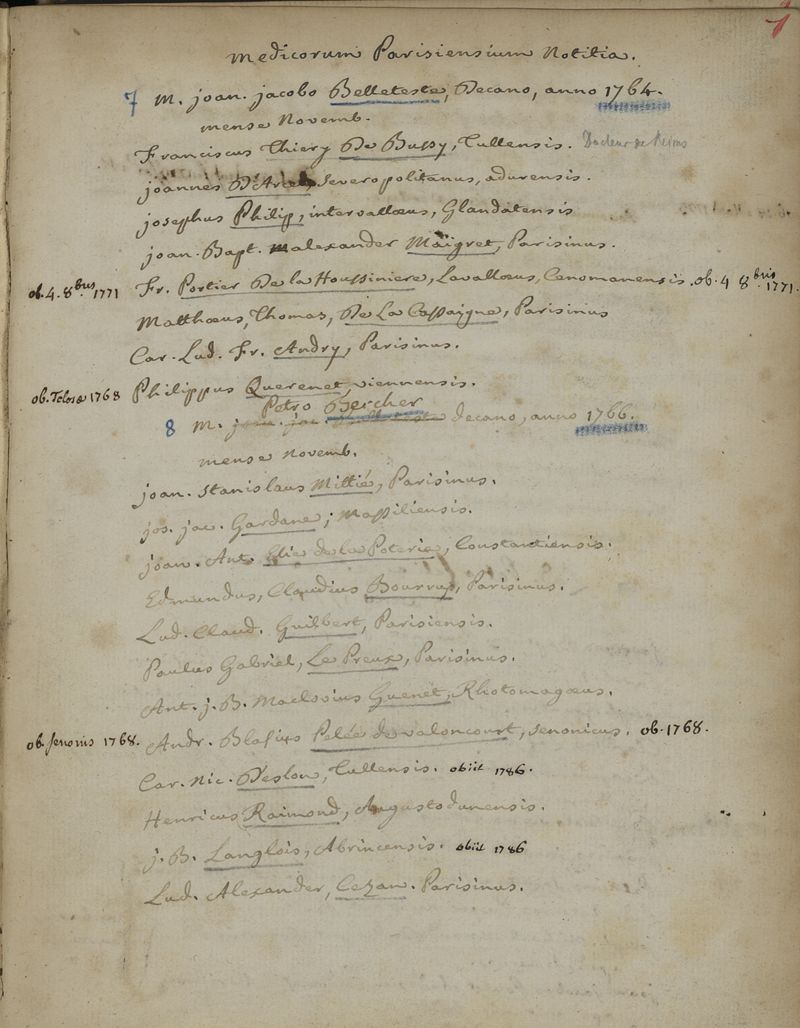 1
Medicorum Parisiensium Notitia.
7 M. joan. jacobo Belleteste, Decano, anno 1764.
mense Novemb.
Franciscus Thiery De Bussy, Tullensis. Docteur de Reims
joannes D'Arcet, Severopolitanus, adurensis.
josephus Philip, intervallœus, Glandatensis
joan. Bapt. alexander Maigret, Parisinus.
ob. 4. 8bris 1771 Fr. Portier De la Houssiniere, Lavallœus, Cenomanensis. ob. 4 8bris 1771.
Matthœus, Thomas, De La Cassaigne, Parisinus
Car. Lud. Fr. Andry, Parisinus.
ob. Tolosæ 1768 Philippus Querenet, viennensis.
Petro Bercher
8 M. joan. jac. Belleteste decano, anno 1766.
mense Novemb.
joan. Stanislaus Mittié, Parisinus.
jos. jac. Gardane, Massiliensis.
joan. Ant. Elie de la Poterie, Constantiensis.
Edmundus, Claudius Bourru, Parisinus.
Lud. Claud. Guilbert, Parisiensis.
Paulus Gabriel, Le Preux, Parisinus.
Ant. j. B. Maclovius Guenet, Rhotomagœus.
ob. senonis 1768. Andr. Blasius Pelée de valoncourt, senonicus. ob. 1768.
Car. Nic. Deslon, Tullensis. obiit 1786.
Henricus Raimond, Augustodunensis.
j. B. Langlois, Abrincensis. obiit 1786
Lud. Alexander, Cezan. Parisinus.